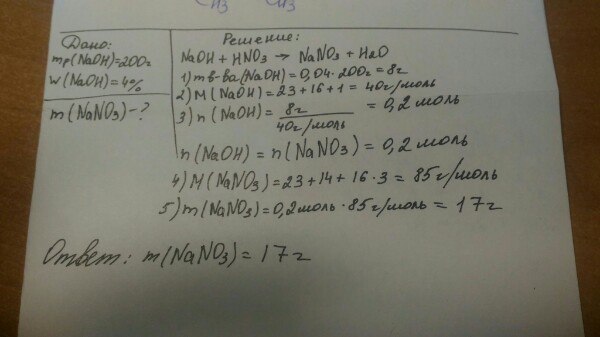 CH3 CH3
Дано:
mр(NaOH)=200г
w(NaOH)=4%
m(NaNO3)-?
Решение:
NaOH + HNO3 → NaNO3 + H2O
1) m в-ва(NaOH)=0,04·200г=8г
2) M(NaOH)=23+16+1=40г/моль
3) n(NaOH)=8г/40г/моль=0,2моль
n(NaOH)=n(NaNO3)=0,2моль
4) M(NaNO3)=23+14+16·3=85г/моль
5) m(NaNO3)=0,2моль·85г/моль=17г
Ответ: m(NaNO3)=17г